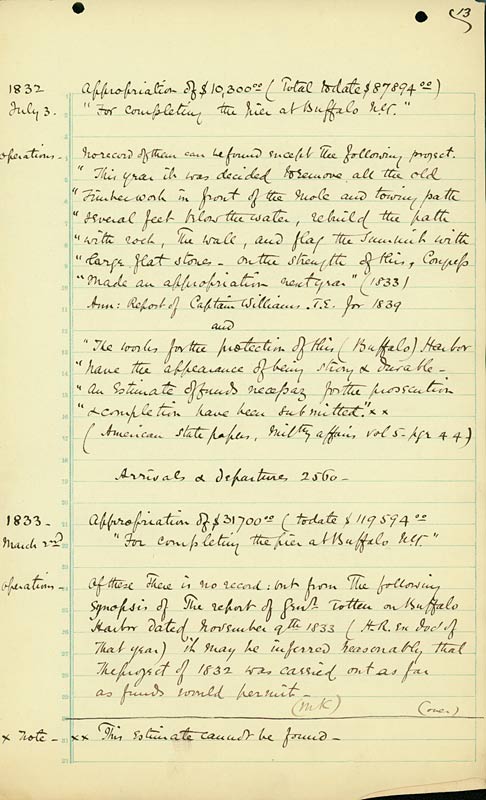 13
1832 Appropriation of $10,300.00 (Total to date $87894.00)
July 3. "For completing the Pier at Buffalo N.Y."
operations - No record of them can be found except the following project.
"This year it was decided to remove all the old
"Timber work in front of the mole and towing path
"several feet below the water, rebuild the path
"with rock, The wall, and flag the Summit with
"large flat stones - on the strength of this, Congress
"made an appropriation next year" (1833)
Ann: Report of Captain Williams. T.E. for 1839
and
"The works for the protection of this (Buffalo) Harbor
"have the appearance of being strong & durable -
"an Estimate of funds necessary for the prosecution
"& completion have been submitted." x x
(American State papers, Milty affairs vol 5 - pgr 44)
Arrivals & departures 2560 -
1833 - Appropriation of $31700.00 (to date $119594.00
March 2nd "For completing the pier at Buffalo N.Y."
operations - Of these There is no record: but from The following
synopsis of The report of Totten on Buffalo
Harbor dated November 9th 1833 (H.R. Ex Doc! of
That year) it may be inferred reasonably that
The project of 1832 was carried out as far
as funds would permit -
(MK) (over)
x note - x x This Estimate cannot be found -